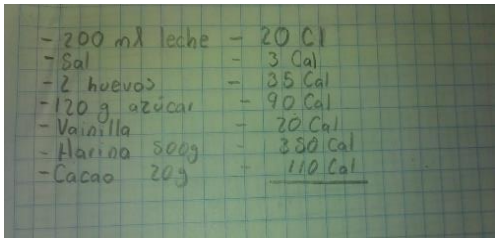 - 200 ml leche - 20 Cl
- Sal - 3 Cal
- 2 huevos - 35 Cal
- 120 g azúcar - 90 Cal
- Vainilla - 20 Cal
- Harina 500g - 350 Cal
- Cacao 20g - 110 Cal